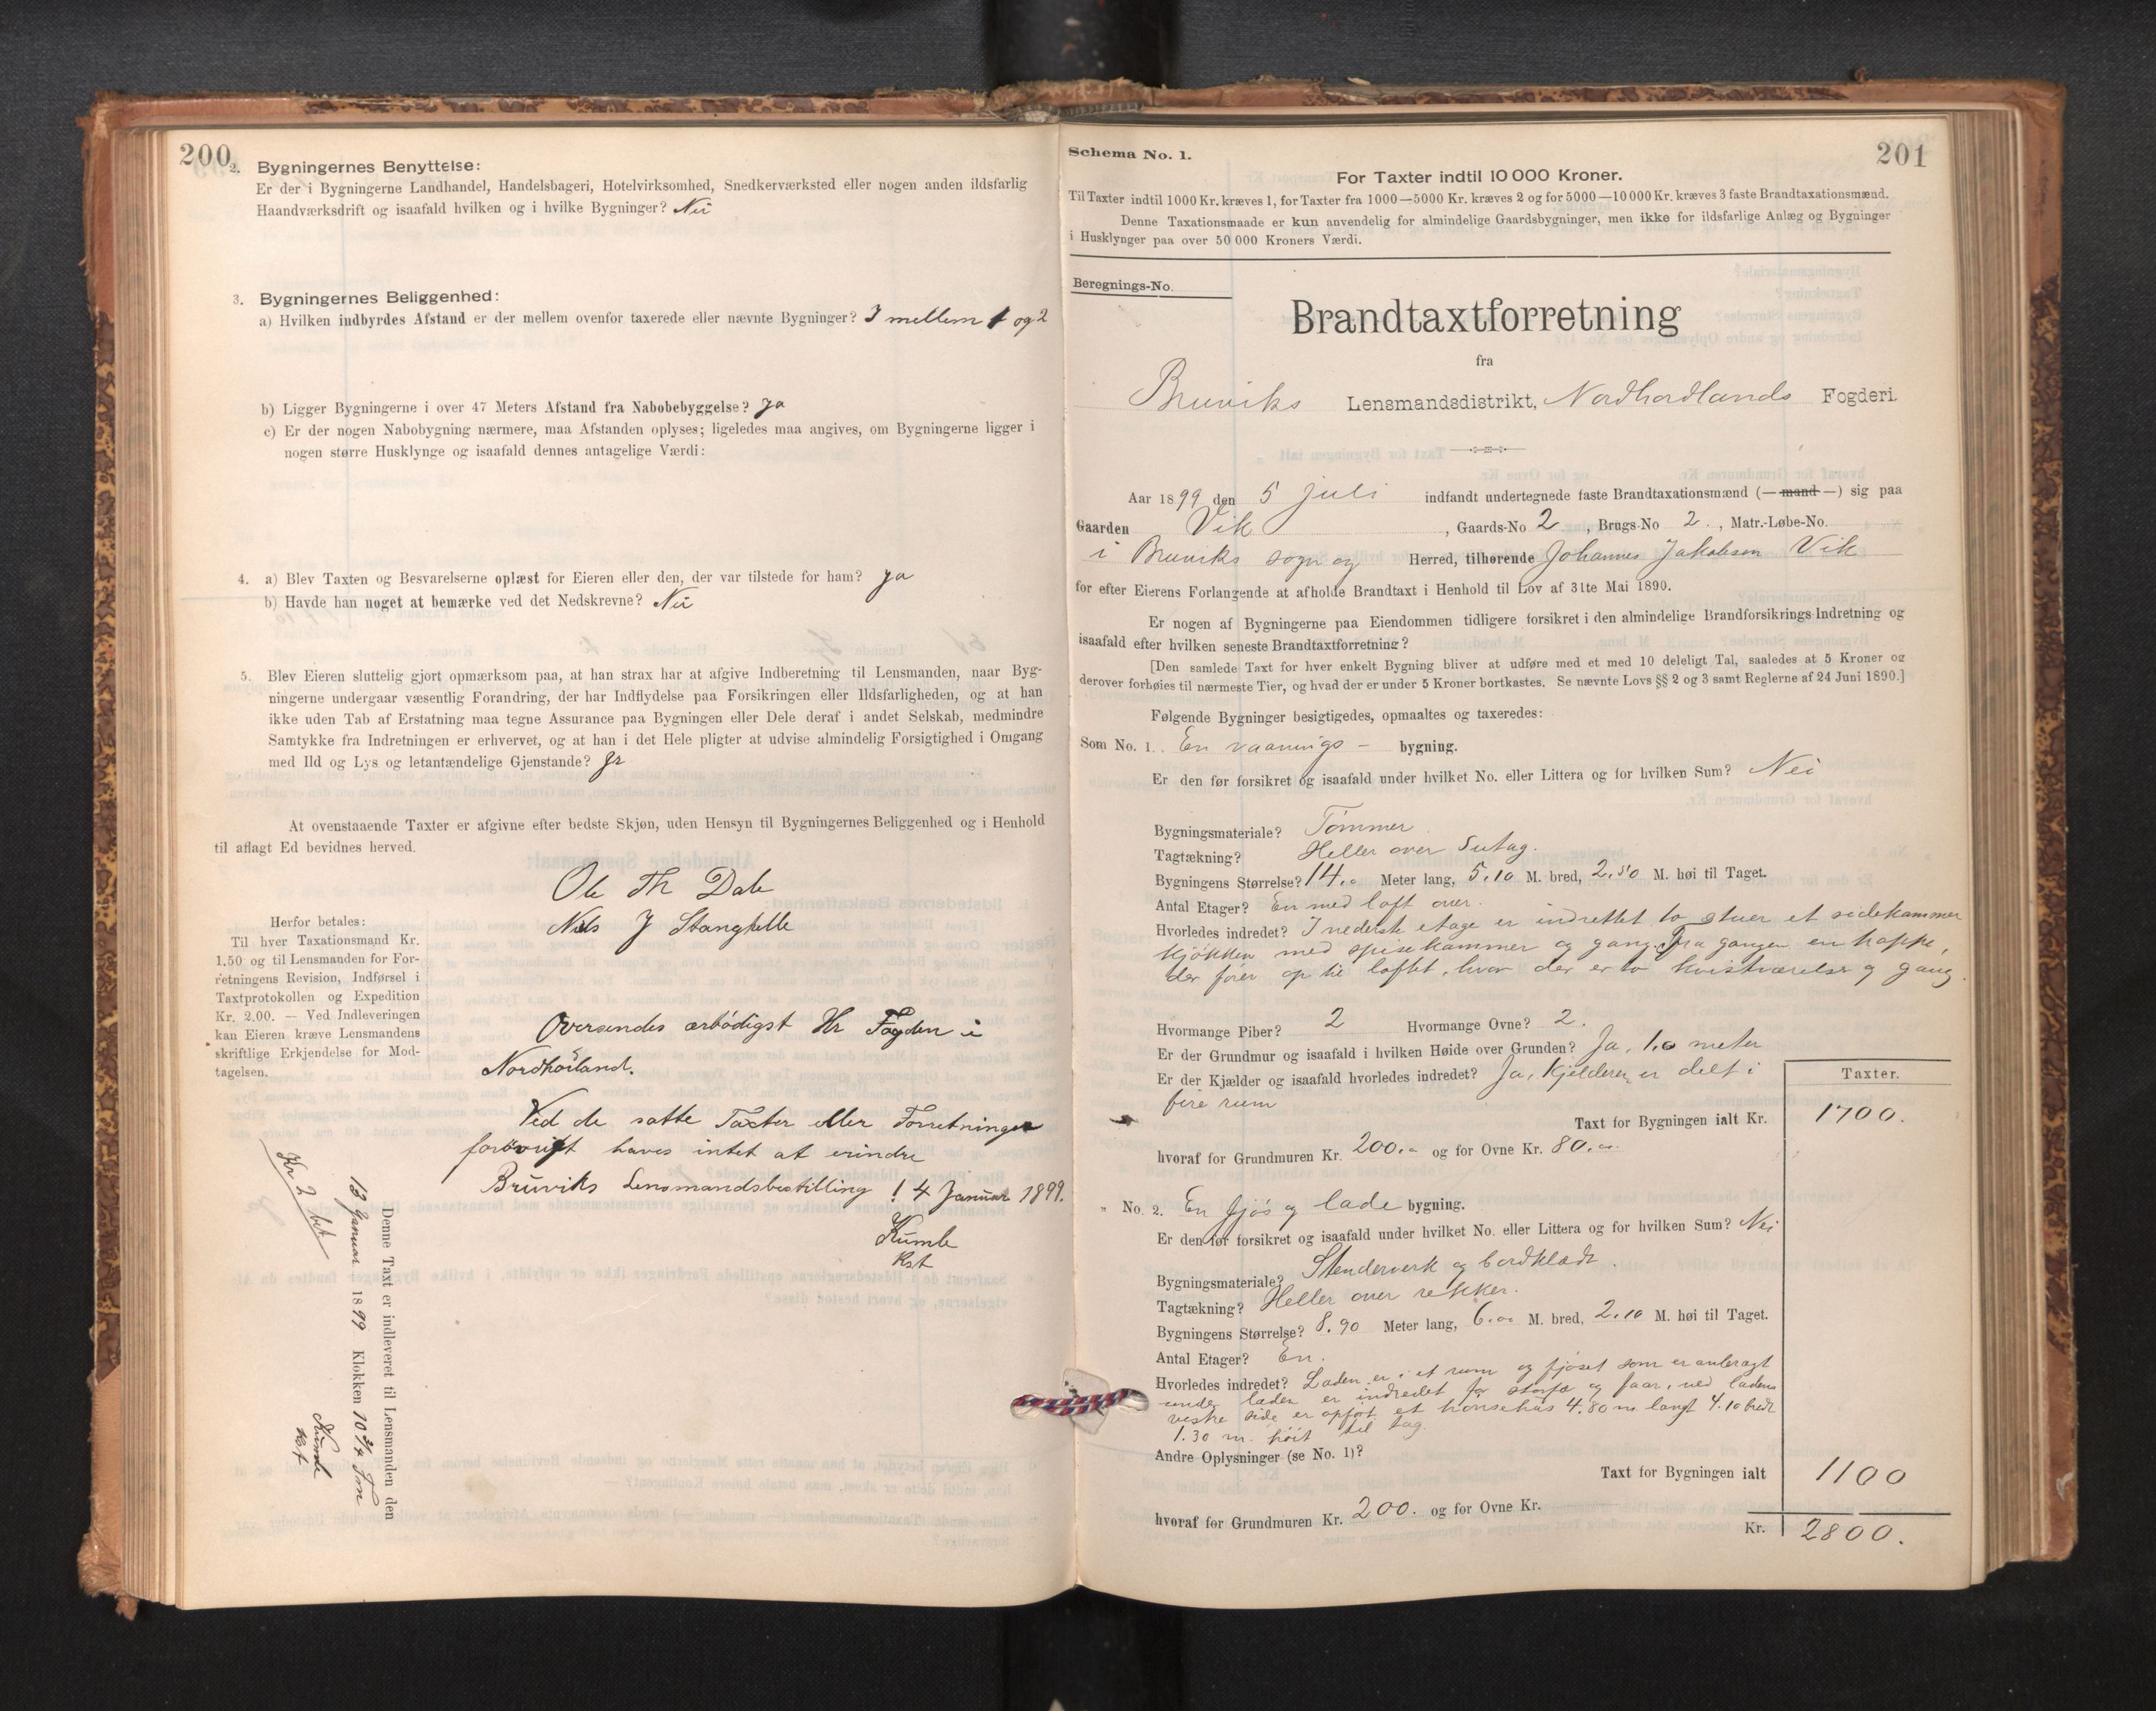 200
2. Bygningernes Benyttelse:
Er der i Bygningerne Landhandel, Handelsbageri, Hotelvirksomhed, Snedkerværksted eller nogen anden ildsfarlig
Haandværksdrift og isaafald hvilken og i hvilke Bygninger? Nei
3. Bygningernes Beliggenhed:
a) Hvilken indbyrdes Afstand er der mellem ovenfor taxerede eller nævnte Bygninger? I mellem 1 og 2
b) Ligger Bygningerne i over 47 Meters Afstand fra Nabobebyggelse? Ja
c) Er der nogen Nabobygning nærmere, maa Afstanden oplyses; ligeledes maa angives, om Bygningerne ligger i
nogen større Husklynge og isaafald dennes antagelige Værdi:
4. a) Blev Taxten og Besvarelserne oplæst for Eieren eller den, der var tilstede for ham? Ja
b) Havde han noget at bemærke ved det Nedskrevne? Nei
5. Blev Eieren sluttelig gjort opmærksom paa, at han strax har at afgive Indberetning til Lensmanden, naar Byg-
ningerne undergaar væsentlig Forandring, der har Indflydelse paa Forsikringen eller Ildsfarligheden, og at han
ikke uden Tab af Erstatning maa tegne Assurance paa Bygningen eller Dele deraf i andet Selskab, medmindre
Samtykke fra Indretningen er erhvervet, og at han i det Hele pligter at udvise almindelig Forsigtighed i Omgang
med Ild og Lys og letantændelige Gjenstande? Ja
At ovenstaaende Taxter er afgivne efter bedste Skjøn, uden Hensyn til Bygningernes Beliggenhed og i Henhold
til aflagt Ed bevidnes herved.
Ole Th Dale
Nils J Stanghelle
Herfor betales:
Til hver Taxationsmand Kr.
1.50 og til Lensmanden for For-
retningens Revision, Indførsel i
Taxtprotokollen og Expedition
Kr. 2.00. — Ved Indleveringen
kan Eieren kræve Lensmandens
skriftlige Erkjendelse for Mod-
tagelsen.
Oversendes ærbödigst Hr Fogden i
Nordhörland.
Ved de satte Taxter eller Forretningen
forövrigt haves intet at erindre
Bruviks Lensmandsbestilling 14 Januar 1899.
Kumle
Kst
Kr 2 bet
Denne Taxt er indleveret til Lensmanden den
13 Januar 1899 Klokken 10 3/4 Fm
Kumle
Kst
201
Schema No. 1.
For Taxter indtil 10 000 Kroner.
Til Taxter indtil 1000 Kr. kræves 1, for Taxter fra 1000—5000 Kr. kræves 2 og for 5000—10 000 Kr. kræves 3 faste Brandtaxationsmænd.
Denne Taxationsmaade er kun anvendelig for almindelige Gaardsbygninger, men ikke for ildsfarlige Anlæg og Bygninger
i Husklynger paa over 50 000 Kroners Værdi.
Beregnings-No.
Brandtaxtforretning
fra
Bruviks Lensmandsdistrikt, Nordhordlands Fogderi.
Aar 1899 den 5 juli indfandt undertegnede faste Brandtaxationsmænd (— mand —) sig paa
Gaarden Vik, Gaards-No 2, Brugs-No 2., Matr.-Løbe-No.
i Bruviks sogn og Herred, tilhørende Johannes Jakobsen Vik
for efter Eierens Forlangende at afholde Brandtaxt i Henhold til Lov af 31te Mai 1890.
Er nogen af Bygningerne paa Eiendommen tidligere forsikret i den almindelige Brandforsikrings-Indretning og
isaafald efter hvilken seneste Brandtaxtforretning?
[Den samlede Taxt for hver enkelt Bygning bliver at udføre med et med 10 deleligt Tal, saaledes at 5 Kroner og
derover forhøies til nærmeste Tier, og hvad der er under 5 Kroner bortkastes. Se nævnte Lovs §§ 2 og 3 samt Reglerne af 24 Juni 1890.]
Følgende Bygninger besigtigedes, opmaaltes og taxeredes:
Som No. 1. En vaanings - bygning.
Er den før forsikret og isaafald under hvilket No. eller Littera og for hvilken Sum? Nei
Bygningsmateriale? Tömmer
Tagtækning? Heller over Sutag.
Bygningens Størrelse? 14.0 Meter lang, 5.10 M. bred, 2.50 M. høi til Taget.
Antal Etager? En med loft over.
Hvorledes indredet? I nederste etage er indrettet to stuer et sidekammer
kjökken med spisekammer og gang. Fra gangen en trappe,
der förer op til loftet, hvor der er to kvistværelser og gang.
Hvormange Piber? 2 Hvormange Ovne? 2.
Er der Grundmur og isaafald i hvilken Høide over Grunden? Ja, 1.0 meter
Er der Kjælder og isaafald hvorledes indredet? Ja, Kjelderen er delt i
fire rum
Taxter.
Taxt for Bygningen ialt Kr. 1700.
hvoraf for Grundmuren Kr. 200.- og for Ovne Kr. 80.-
" No. 2. En fjös og lade bygning.
Er den før forsikret og isaafald under hvilket No. eller Littera og for hvilken Sum? Nei
Bygningsmateriale? Stenderverk og bordklædt.
Tagtækning? Heller over rekker.
Bygningens Størrelse? 8.90 Meter lang, 6.00 M. bred, 2.10 M. høi til Taget.
Antal Etager? En.
Hvorledes indredet? Laden er i et rum og fjöset som er anbragt
under laden er indredet for storfæ og faar, ved ladens
vestre side er opfört et hönsehus 4.80 m langt 4.10 bredt
1.30 m. höit til tag.
Andre Oplysninger (se No. 1)?
Taxt for Bygningen ialt 1100
hvoraf for Grundmuren Kr. 200. og for Ovne Kr.
Kr. 2800.